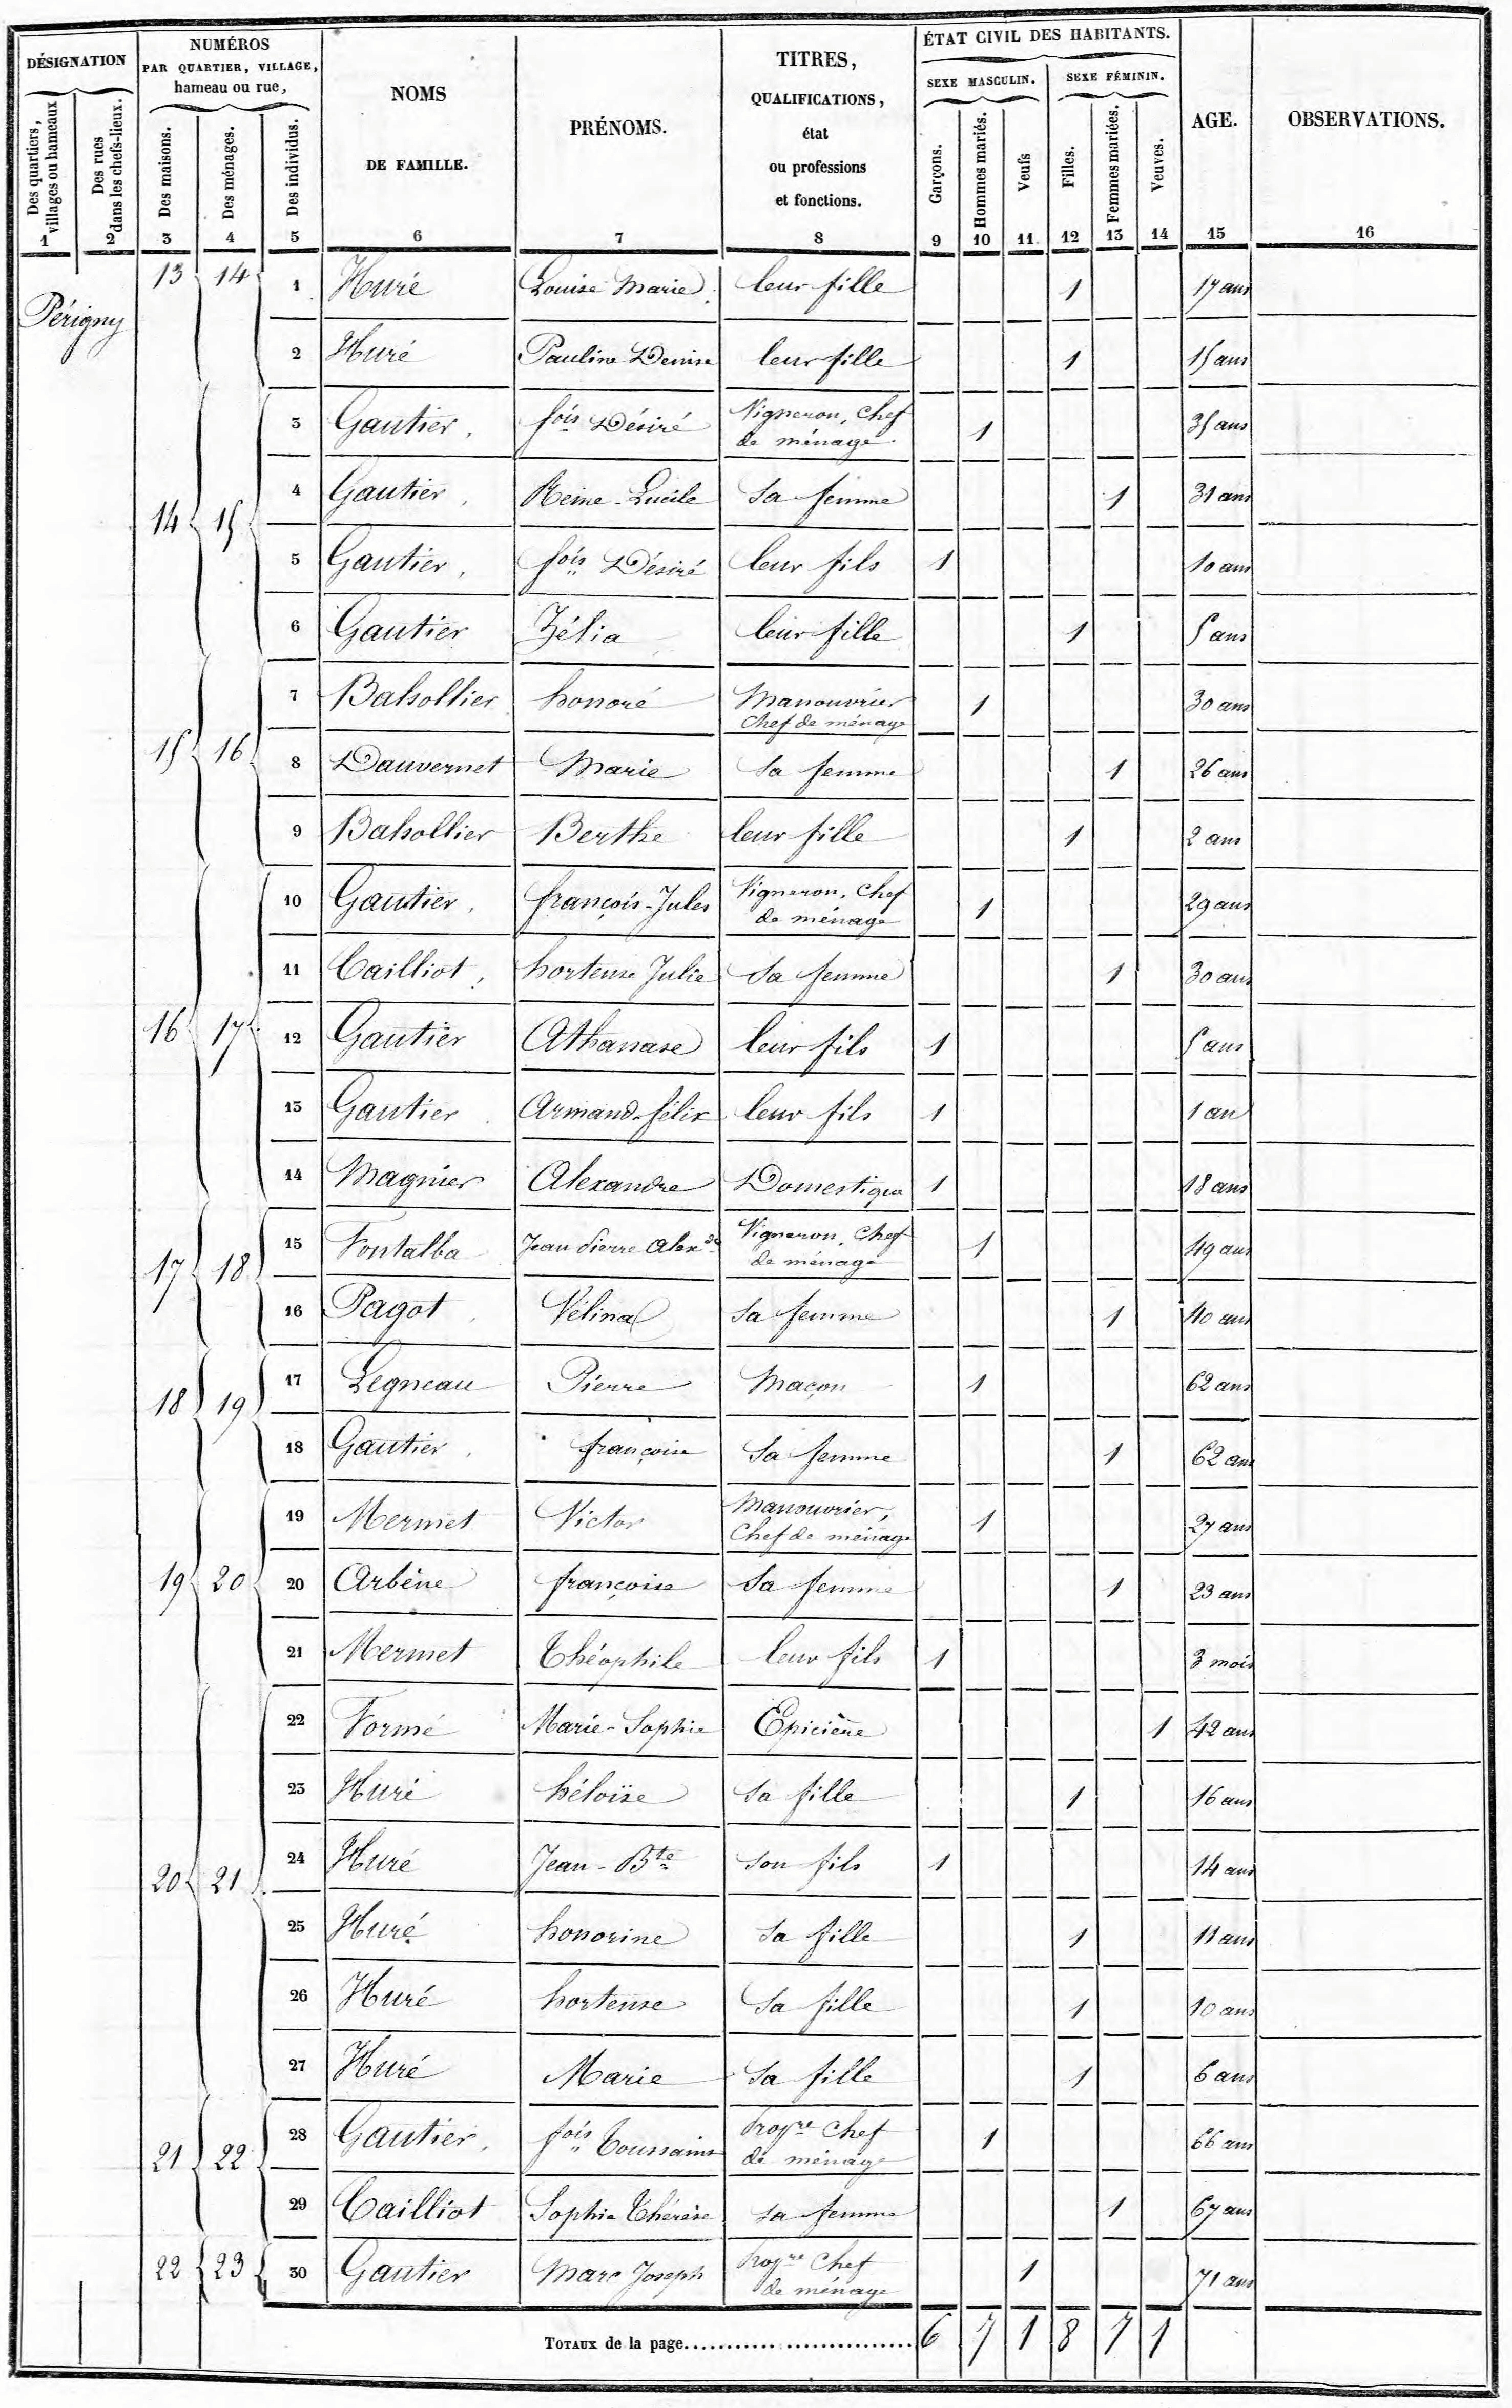 DÉSIGNATION
NUMÉROS
PAR QUARTIER, VILLAGE,
hameau ou rue,
NOMS
DE FAMILLE.
PRÉNOMS.
TITRES,
QUALIFICATIONS,
état
ou professions
et fonctions.
ÉTAT CIVIL DES HABITANTS.
SEXE MASCULIN. SEXE FÉMININ.
AGE.
OBSERVATIONS.
Des quartiers,
villages ou hameaux
Des rues
dans les chefs-lieux.
Des maisons.
Des ménages.
Des individus.
Garçons.
Hommes mariés.
Veufs
Filles.
Femmes mariées.
Veuves.
1 2 3 4 5 6 7 8 9 10 11. 12 13 14 15 16
Périgny
13 14 1 Huré Louise Marie leur fille 1 17 ans
2 Huré Pauline Denise leur fille 1 15 ans
14 15 3 Gautier fois Désiré Vigneron, Chef de ménage 1 35 ans
4 Gautier Reine-Lucile Sa femme 1 31 ans
5 Gautier fois Désiré leur fils 1 10 ans
6 Gautier Zélia leur fille 1 5 ans
15 16 7 Balsollier honoré Manouvrier Chef de ménage 1 30 ans
8 Dauvernet Marie Sa femme 1 26 ans
9 Balsollier Berthe leur fille 1 2 ans
16 17 10 Gautier françois-Jules Vigneron, Chef de ménage 1 29 ans
11 Cailliot hortense Julie Sa femme 1 30 ans
12 Gautier Athanase leur fils 1 5 ans
13 Gautier Armand-félix leur fils 1 1 an
14 Magnier Alexandre Domestique 1 18 ans
17 18 15 Fontalba Jean Pierre Alexdre Vigneron, Chef de ménage 1 49 ans
16 Pagot Vélina Sa femme 1 40 ans
18 19 17 Legneau Pierre Maçon 1 62 ans
18 Gautier françoise Sa femme 1 62 ans
19 20 19 Mermet Victor Manouvrier, Chef de ménage 1 27 ans
20 Arbène françoise Sa femme 1 23 ans
21 Mermet Théophile leur fils 1 3 mois
20 21 22 Formé Marie-Sophie Epicière 1 42 ans
23 Huré héloïse Sa fille 1 16 ans
24 Huré Jean-Bte Son fils 1 14 ans
25 Huré honorine Sa fille 1 11 ans
26 Huré hortense Sa fille 1 10 ans
27 Huré Marie Sa fille 1 6 ans
21 22 28 Gautier fois Toussaint Propre Chef de ménage 1 66 ans
29 Cailliot Sophie Thérèse sa femme 1 67 ans
22 23 30 Gautier Marc Joseph Propre Chef de ménage 1 71 ans
TOTAUX de la page 6 7 1 8 7 1